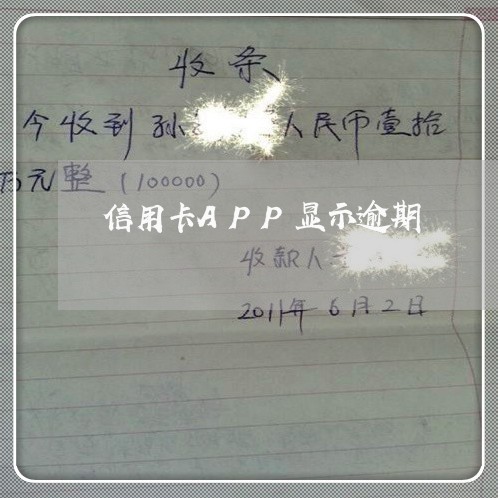 收条
今收到孙人民币壹拾
万元整(100000)
信用卡APP显示逾期
收款人
2011年6月2日